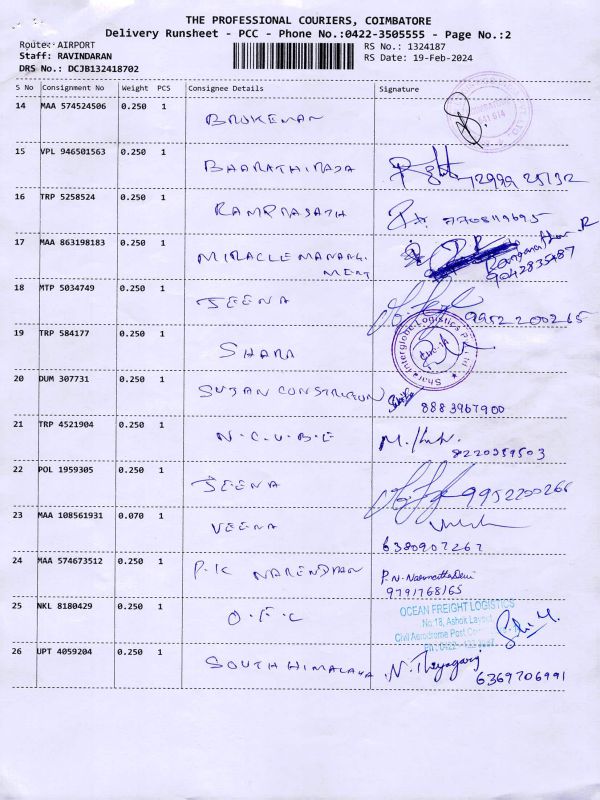 THE PROFESSIONAL COURIERS, COIMBATORE
Delivery Runsheet - PCC - Phone No.:0422-3505555 - Page No.:2
Route: AIRPORT RS No.: 1324187
Staff: RAVINDARAN RS Date: 19-Feb-2024
DRS No.: DCJB132418702
S No Consignment No Weight PCS Consignee Details Signature
14 MAA 574524506 0.250 1
BROKEMAN
15 VPL 946501563 0.250 1
BHARATHIRAJA
16 TRP 5258524 0.250 1
RAMPRASATH 7708119695
17 MAA 863198183 0.250 1
MIRACLE MANAGE
MENT 9042835487
18 MTP 5034749 0.250 1
JEENA 9952200265
19 TRP 584177 0.250 1
Interglobe Logistics Pvt Ltd
20 DUM 307731 0.250 1
SUJAN CONSTRUCTION
8883967900
21 TRP 4521904 0.250 1
N.C.U.B.E
8220359503
22 POL 1959305 0.250 1
JEENA 9952200266
23 MAA 108561931 0.070 1
VEENA
6380907267
24 MAA 574673512 0.250 1
P.K NARENDRAN
9791768165
25 NKL 8180429 0.250 1
O.F.C
OCEAN FREIGHT LOGISTICS
No.18, Ashok Layout
Civil Aerodrome Post
26 UPT 4059204 0.250 1
SOUTH HIMALAYA N. Thiyagaraj
6369706991